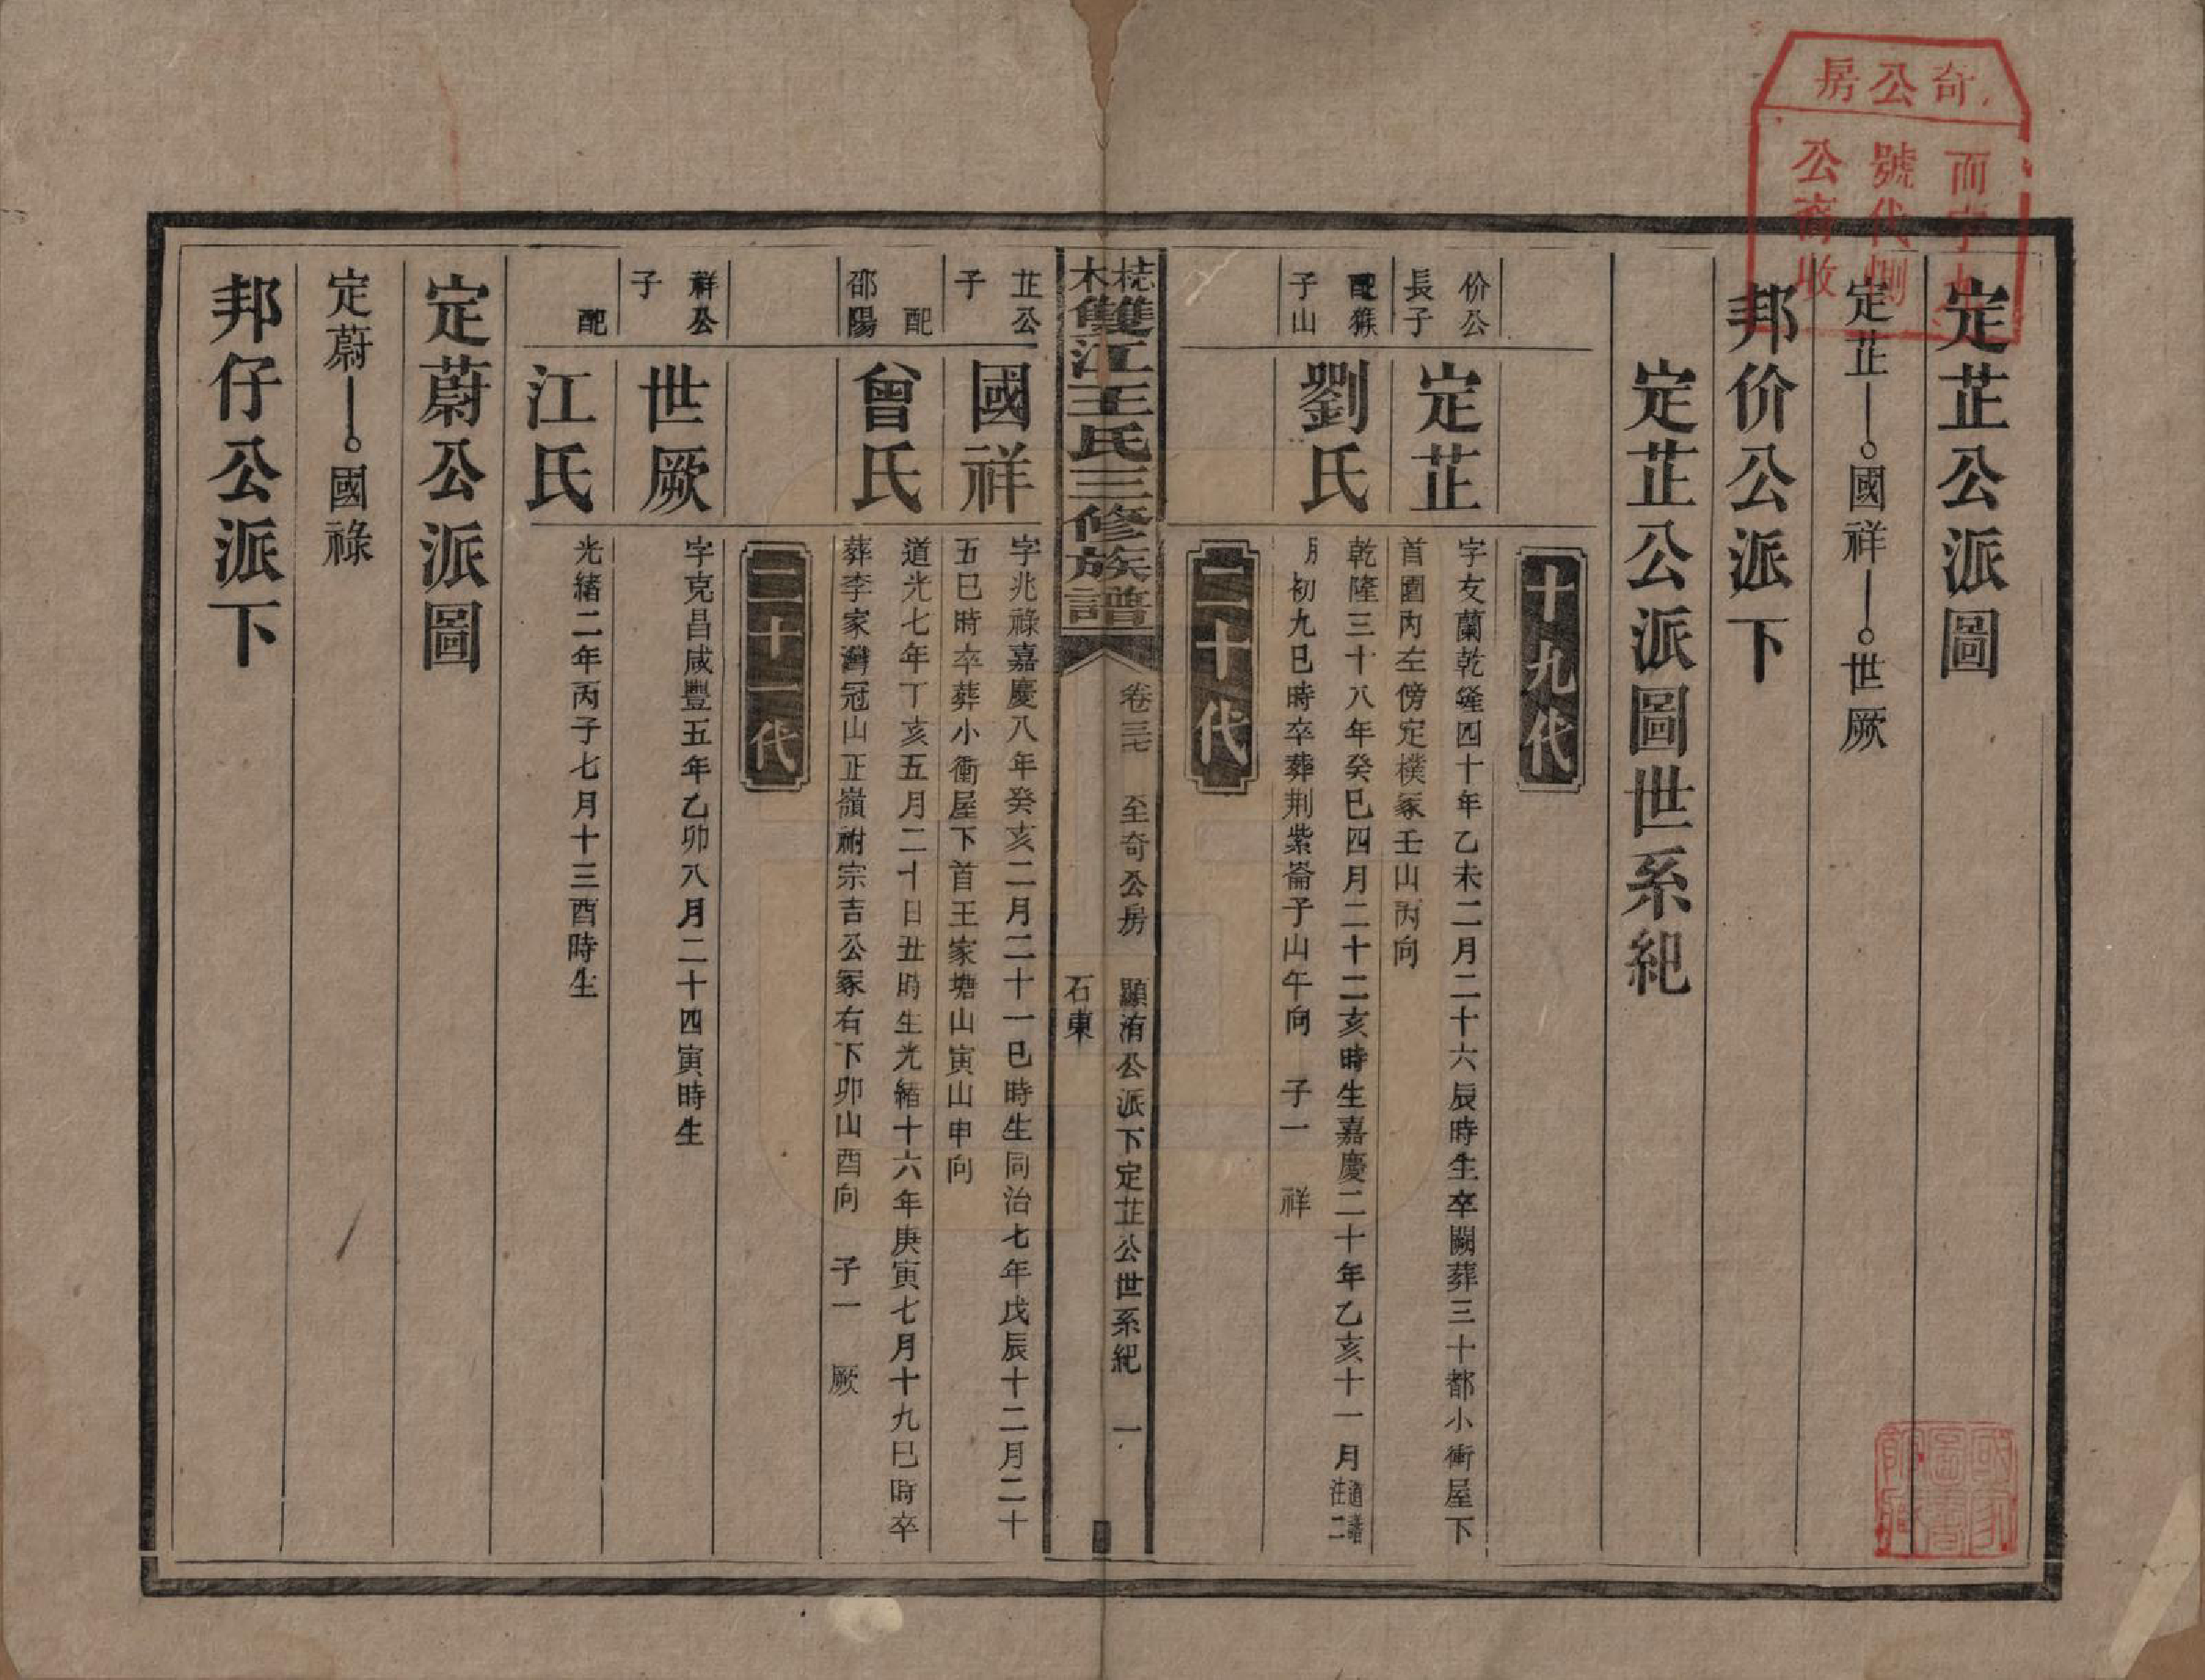 奇公房
號代
公裔收
定芷公派圖
定芷—。國祥—。世厥
邦价公派下
定芷公派圖世系紀
十九代
价公長子
定芷
字友蘭乾隆四十年乙未二月二十六辰時生卒闕葬三十都小衝屋下
首園內左傍定樸冢壬山丙向
配
子山
劉氏
乾隆三十八年癸巳四月二十二亥時生嘉慶二十年乙亥十一月
初九巳時卒葬荆紫崙子山午向 子一 祥
二十代
雙江王氏三修族譜
卷三七 至奇公房 顯洧公派下定芷公世系紀 一
石東
芷公子
國祥
字兆祿嘉慶八年癸亥二月二十一巳時生同治七年戊辰十二月二十
五巳時卒葬小衝屋下首王家塘山寅山申向
配邵陽
曾氏
道光七年丁亥五月二十日丑時生光緒十六年庚寅七月十九巳時卒
葬李家灣冠山正嶺祔宗吉公冢右下卯山酉向 子一 厥
二十一代
祥公子
世厥
字克昌咸豐五年乙卯八月二十四寅時生
配
江氏
光緒二年丙子七月十三酉時生
定蔚公派圖
定蔚—。國祿
邦仔公派下